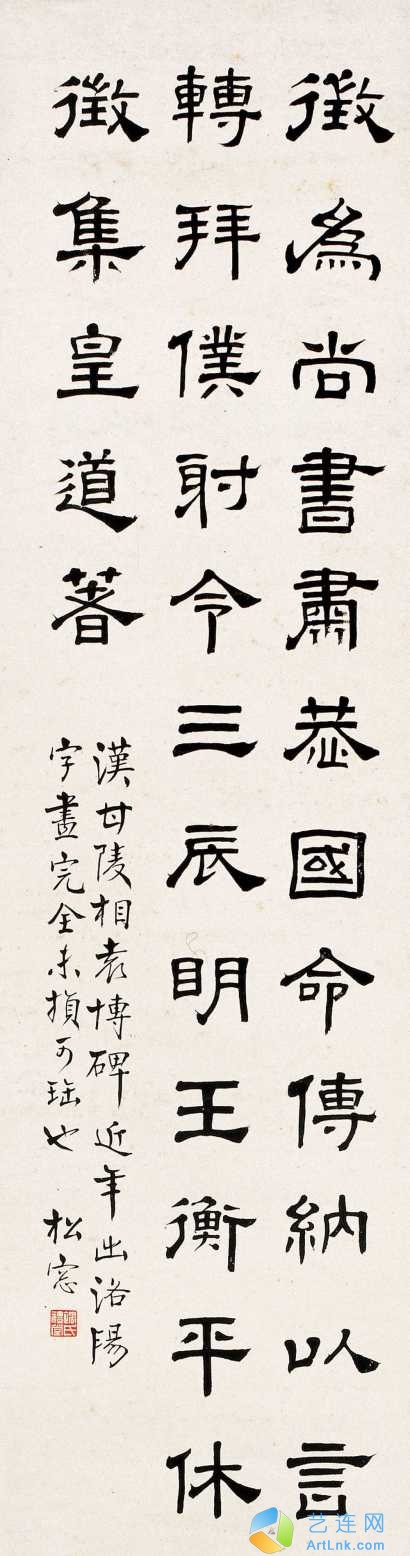 徵為尚書肅恭國命傅納以言
轉拜僕射令三辰明王衡平休
徵集皇道著
漢甘陵相袁博碑近年出洛陽
字畫完全未損可珤也 松窓
艺连网
ArtLink.com